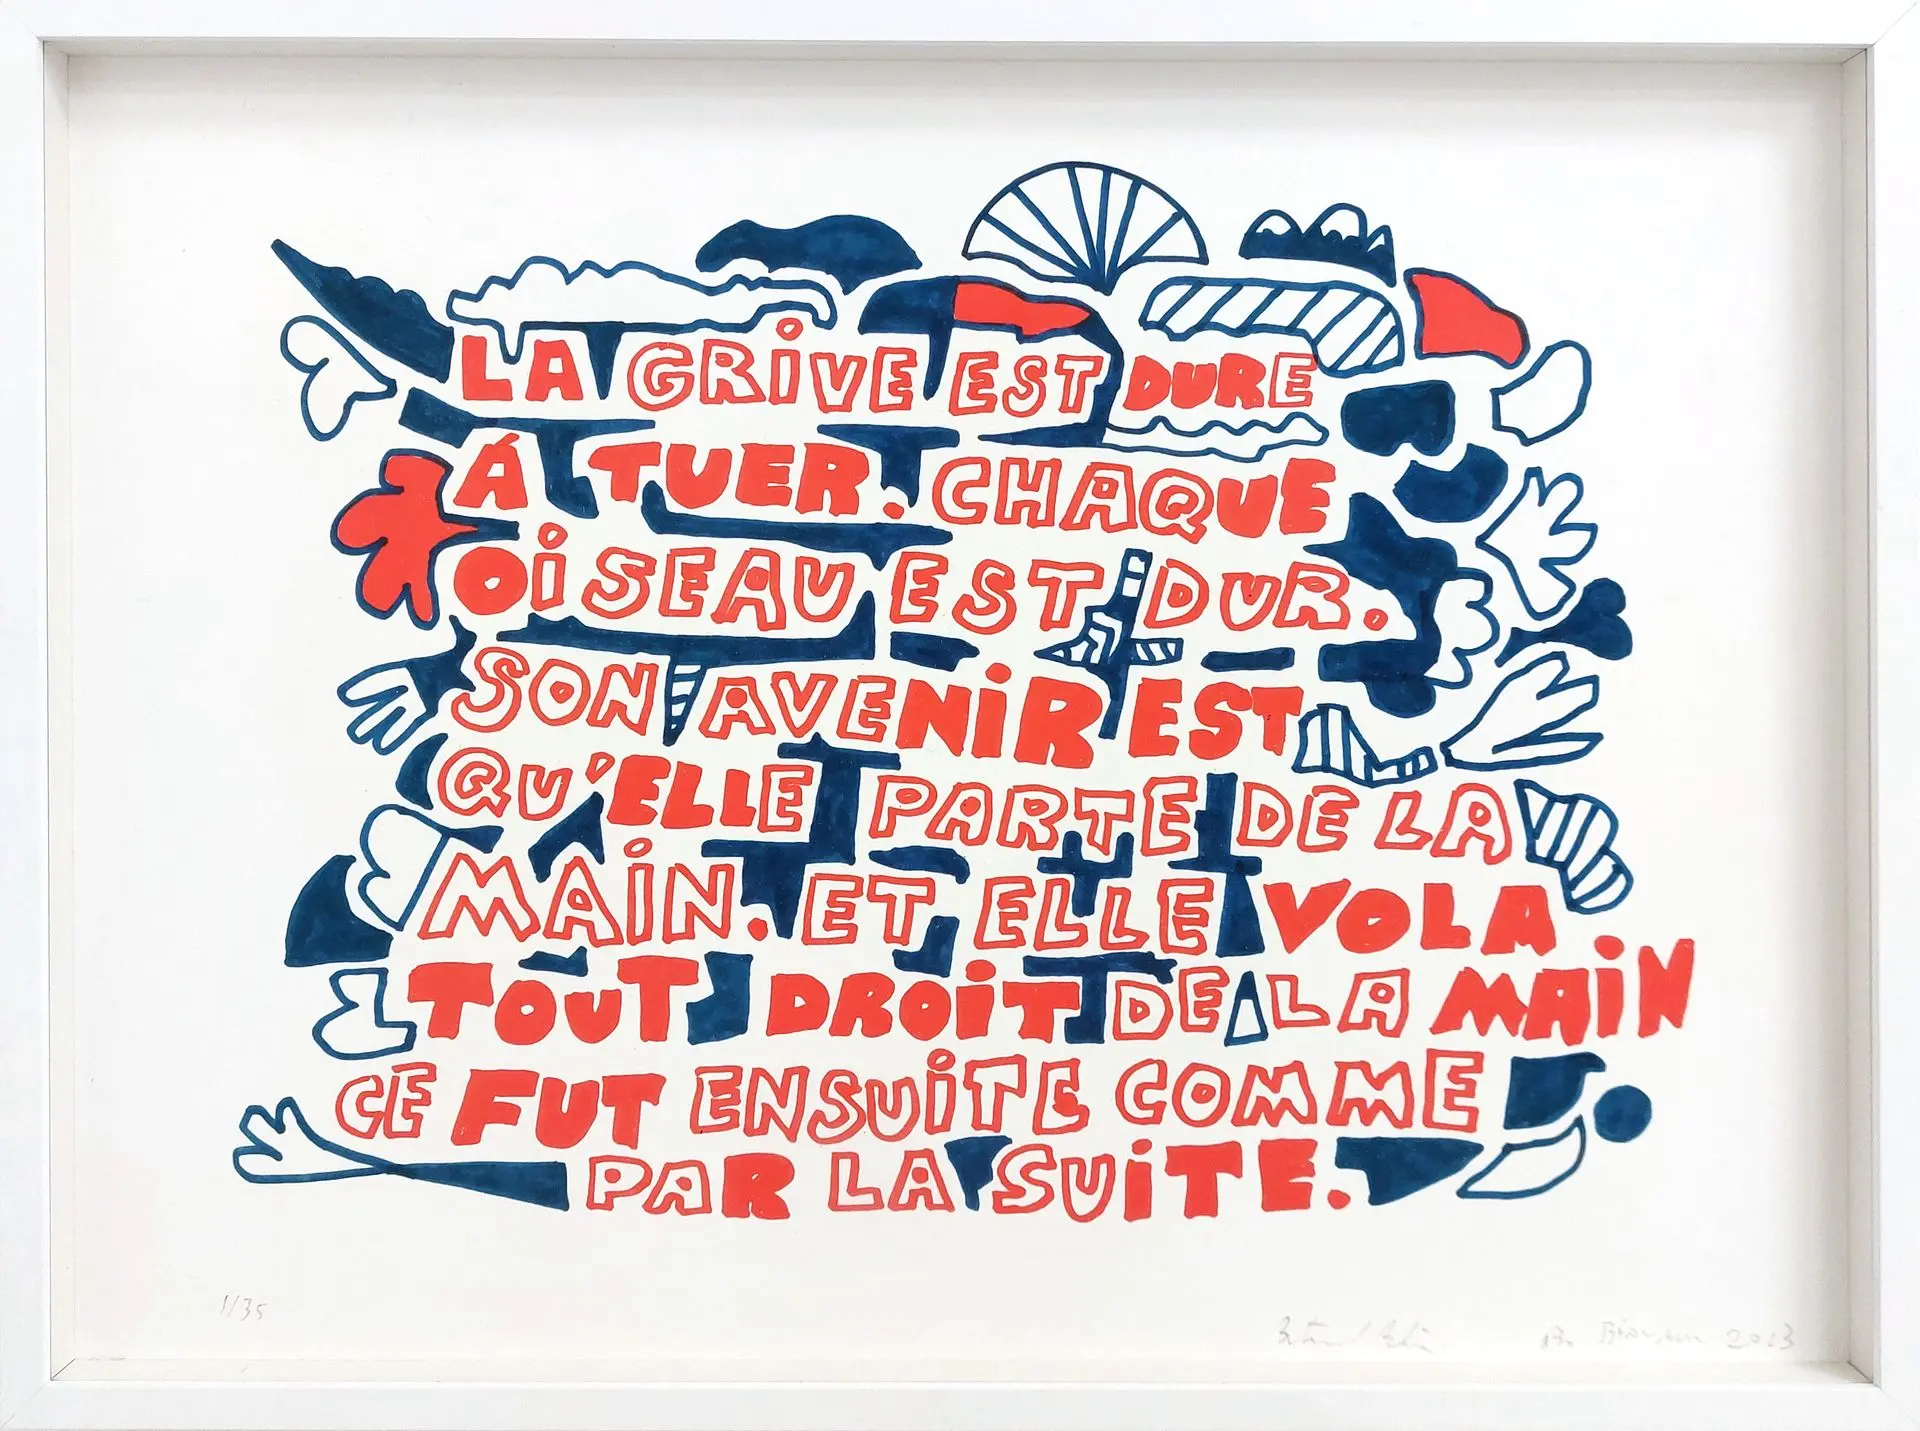 LA GRIVE EST DURE
Á TUER. CHAQUE
OISEAU EST DUR.
SON AVENIR EST
QU'ELLE PARTE DE LA
MAIN. ET ELLE VOLA
TOUT DROIT DE LA MAIN
CE FUT ENSUITE COMME
PAR LA SUITE.
1/35
2013